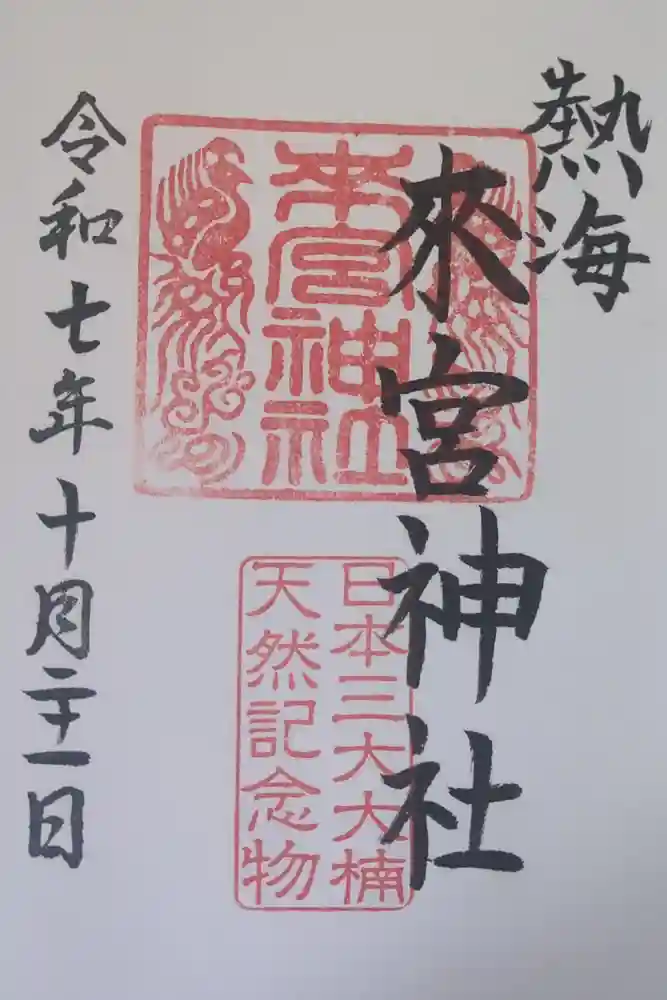 熱海
來宮神社
來宮神社
日本三大大楠
天然記念物
令和七年十月二十一日